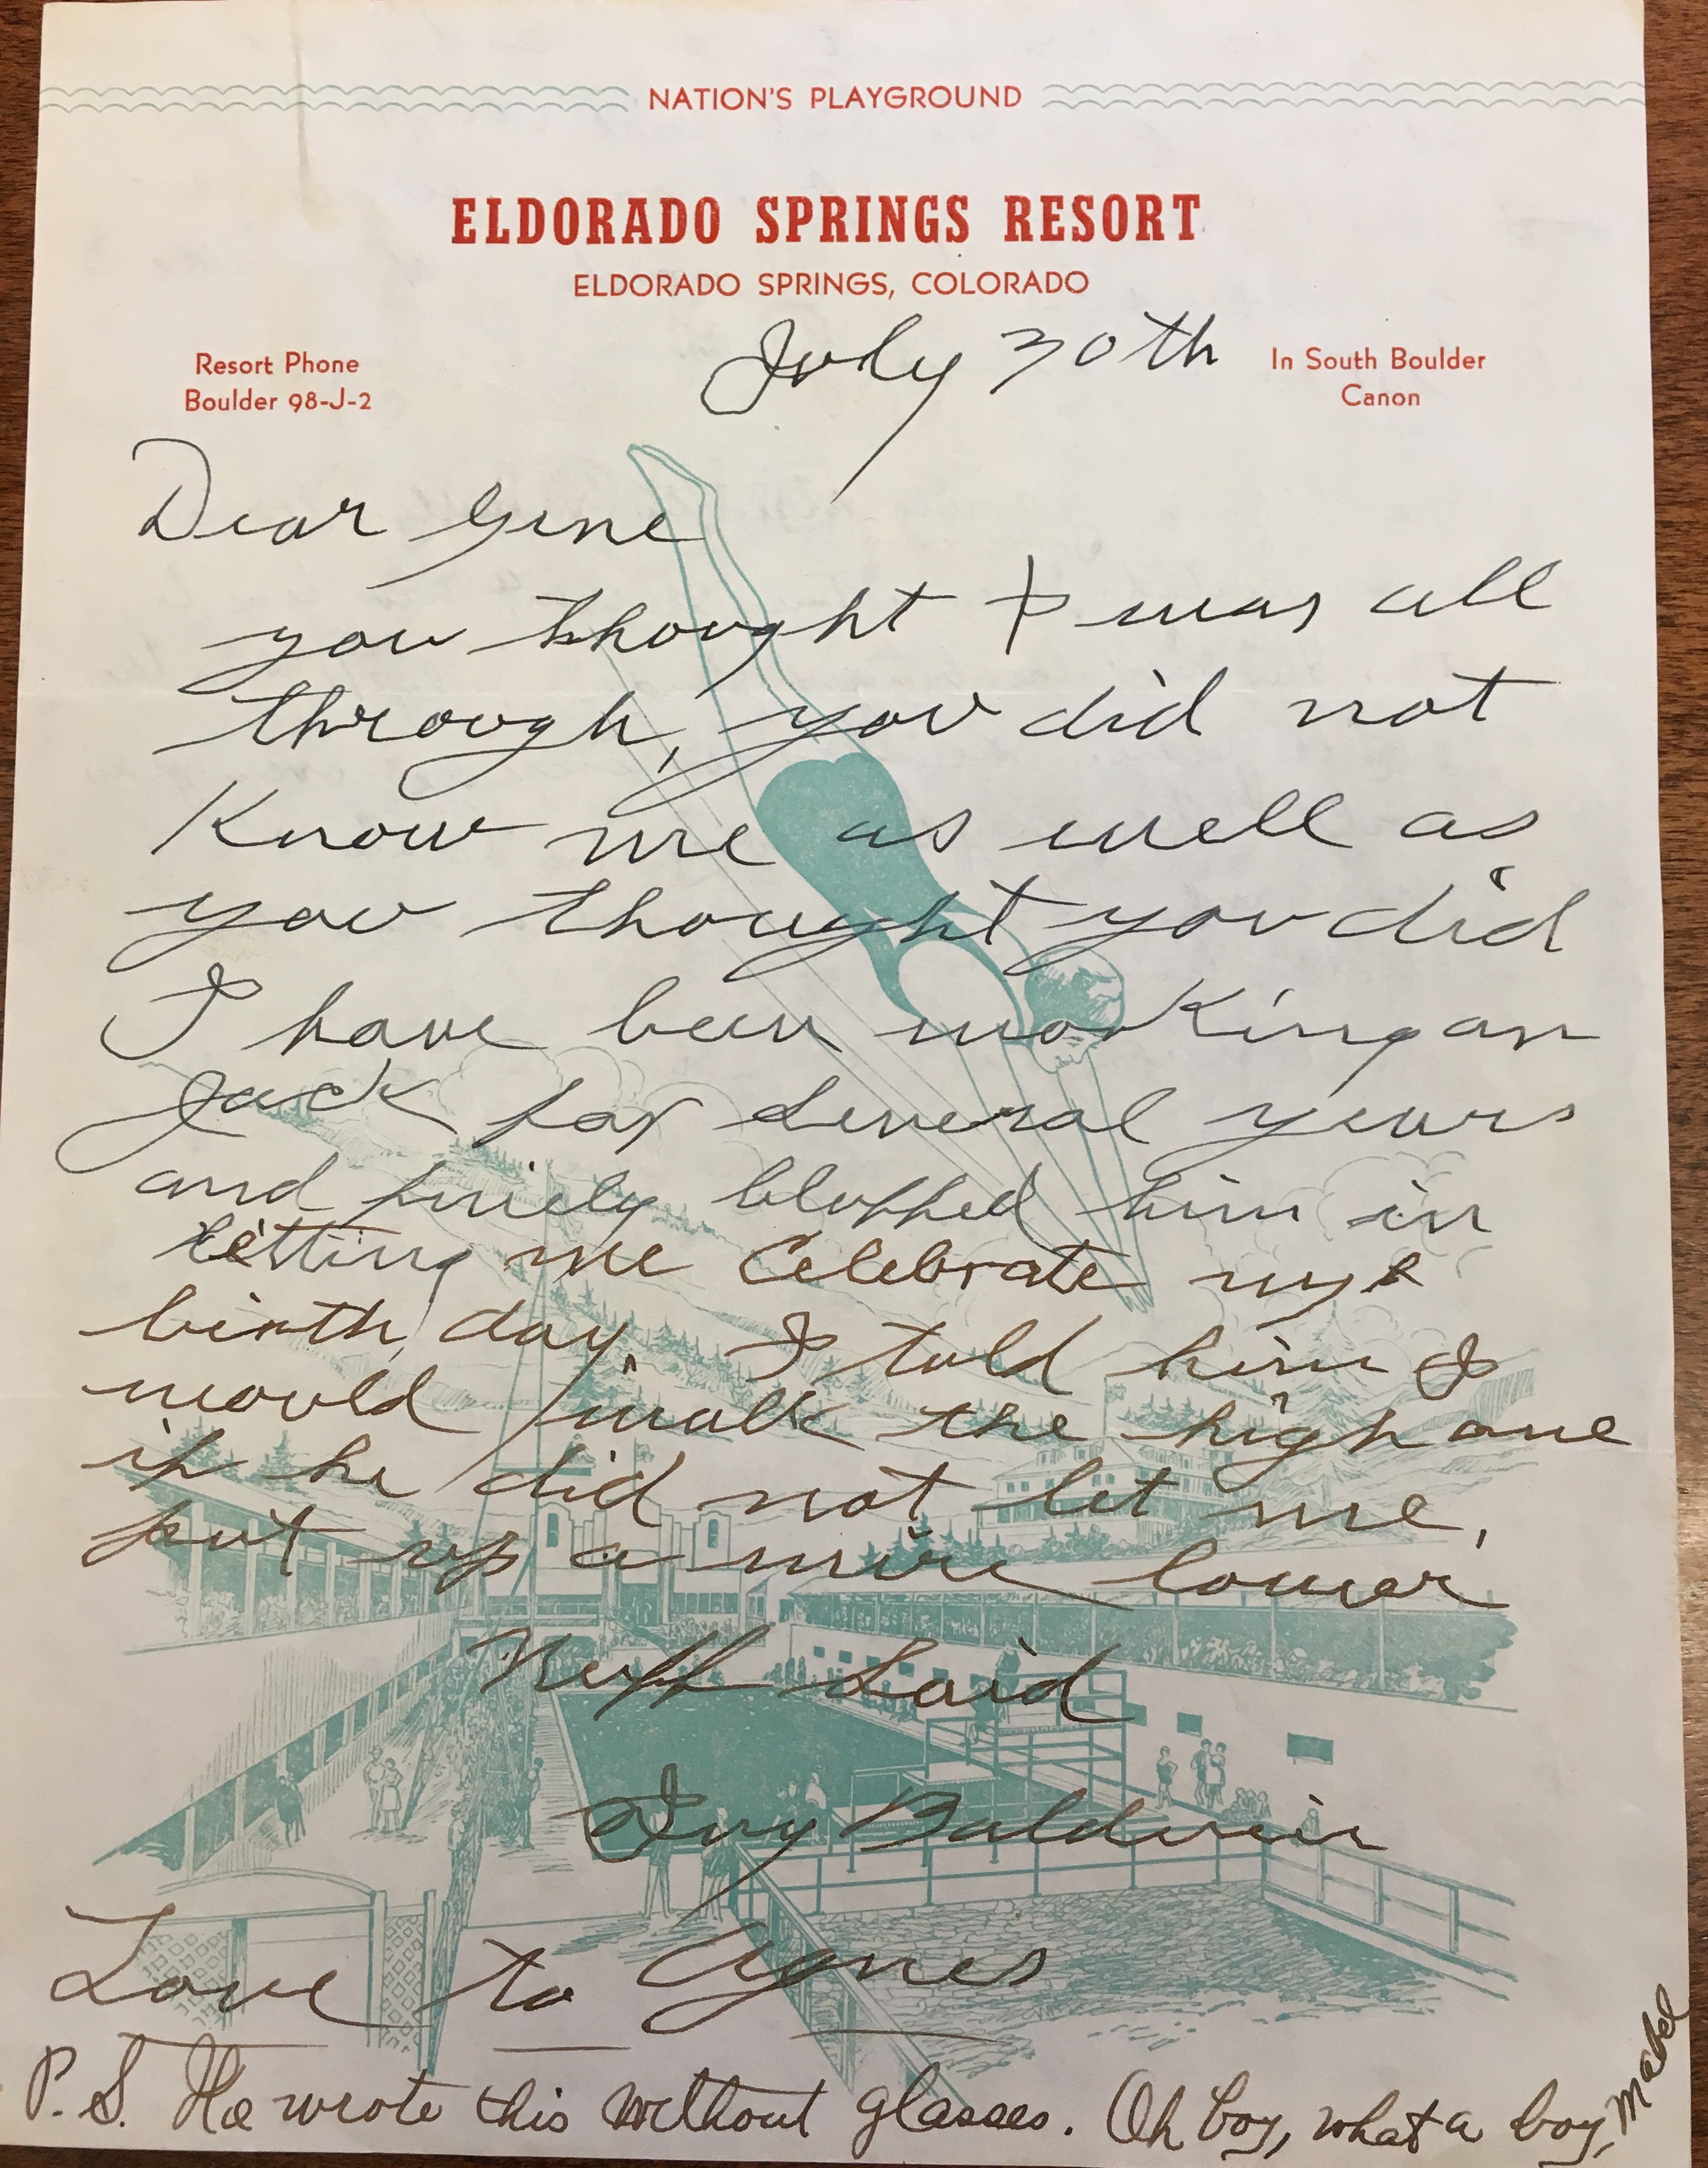 NATION'S PLAYGROUND
ELDORADO SPRINGS RESORT
ELDORADO SPRINGS, COLORADO
Resort Phone
Boulder 98-J-2
July 30th
In South Boulder
Canon
Dear Gene
you thought I was all
through, you did not
Know me as well as
you thought you did
I have been working on
Jack for several years
and finely bluffed him in
letting me celebrate my
birth day. I told him I
would walk the high one
if he did not let me,
put up a wire lower
Nuff Said
Ivy Baldwin
Love to Agnes
P.S. He wrote this without glasses. Oh boy, what a boy, Mabel